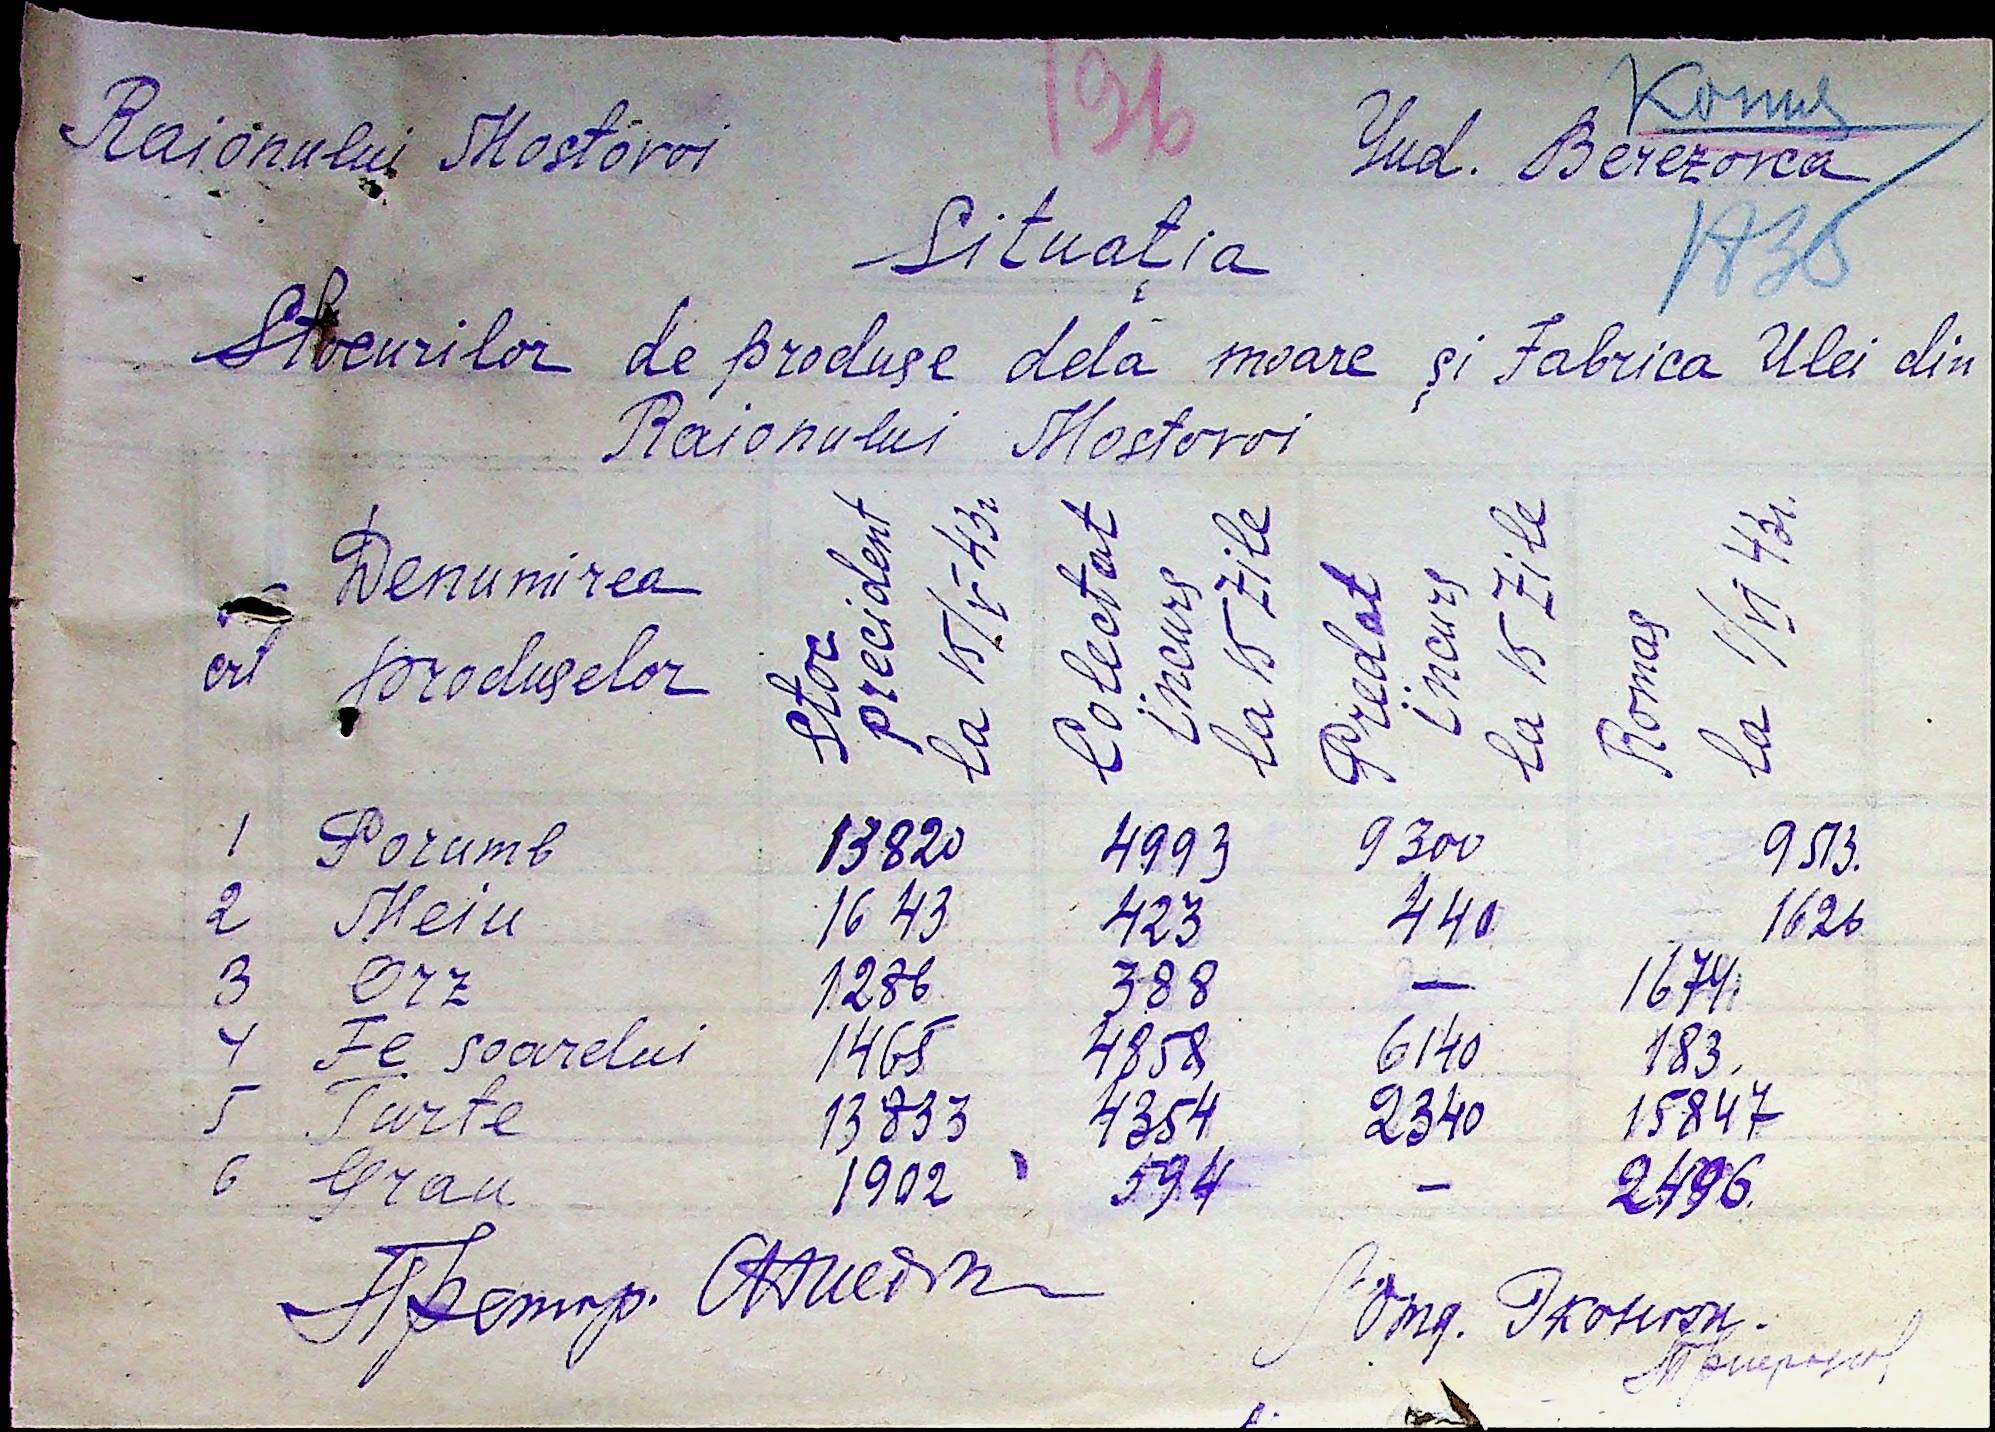 196
Kornuș
Raionului Mostovoi Jud. Berezovca
1836
Situația
Stocurilor de produse dela moare și Fabrica Ulei din
Raionului Mostovoi
crt Denumirea produselor Stoc precident la 15/V-43г Colectat incurs la 15 zile Predat incurs la 15 zile Romas la 1/VI 43г.
1 Porumb 13820 4993 9300 9513.
2 Meiu 1643 423 440 1626
3 Orz 1286 388 — 1674.
4 Fe soarelui 1465 4858 6140 183.
5 Turte 13833 4354 2340 15847
6 Grau 1902 594 — 2496.
Претор.